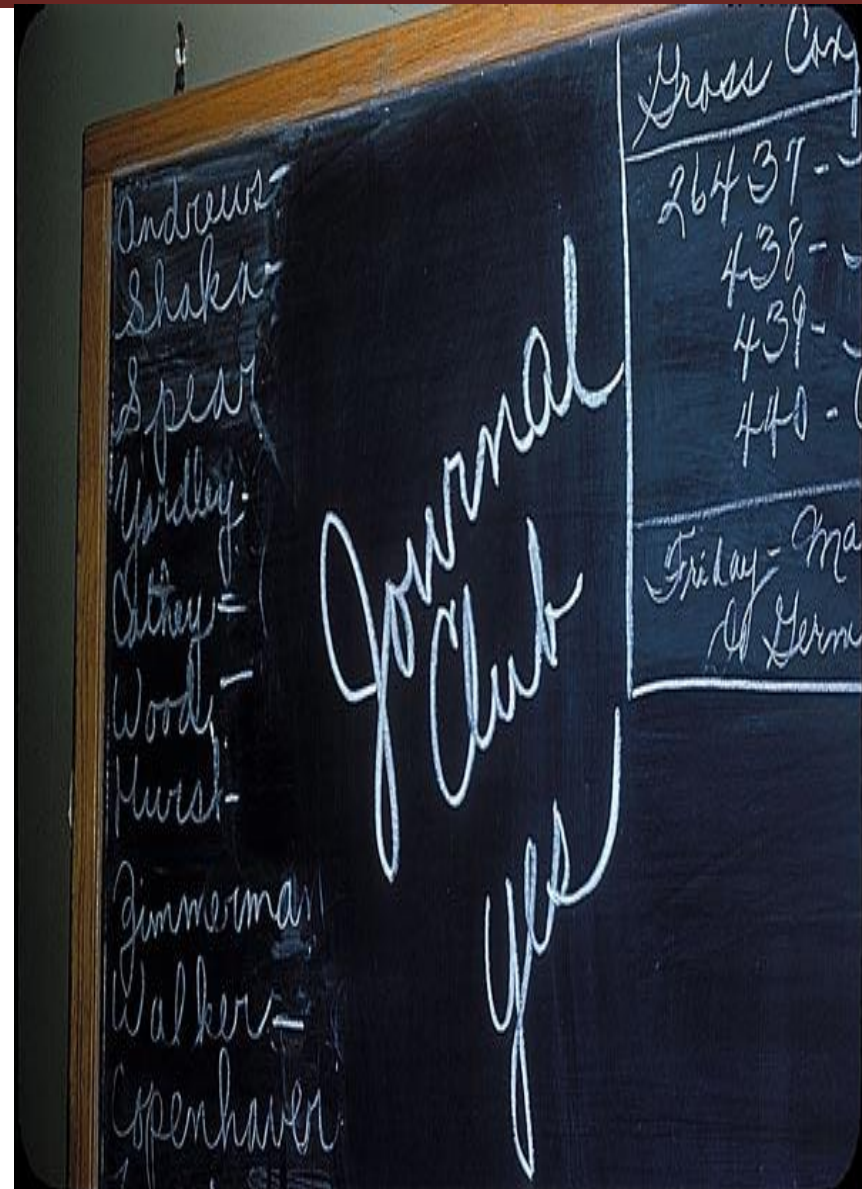 Andrews-
Shaka-
Spear
Yardley-
Cathey=
Wood,-
Hurst-
Zimmerman
Walker-
Copenhaver
Journal
Club
yes
Gross Con
26437-
438-
439-
440-
Friday- Ma
Germ